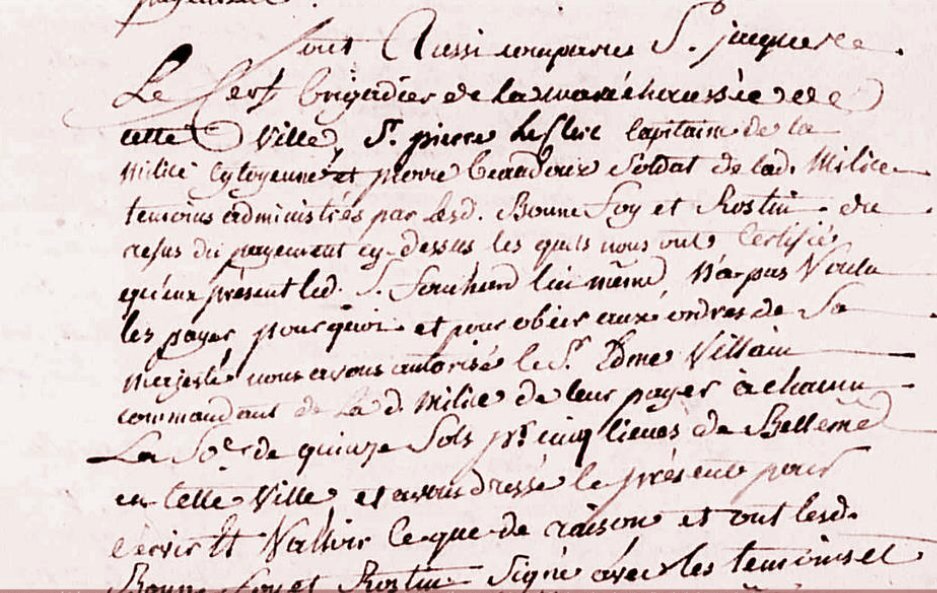 Sont Aussi comparus Sr. jacques
Le Cerf brigadier de la maréchaussée de
cette Ville, Sr. pierre Le Clerc Capitaine de la
Milice Cytoyenne et pierre beaudoux Soldat de lad. Milice
temoins administrés par lesd. Bonne foy et Rostin du
refus du payement cy-dessus les quels nous ont Certifié
qu'eux présent led. S. lui même N'a pas Voulu
les payer pourquoi et pour obéir aux ordres de Sa
Majesté nous avons autorisé le Sr. Edme Villain
commandant de lad. Milice de leur payer à chacun
La So.e de quinze Sols pr. cinq lieues de Bellême
en Cette Ville et avons dressé le présent pour
Servir Et Valloir Ce que de raison et ont lesd.
Bonne foy et Rostin Signé avec les temoins et